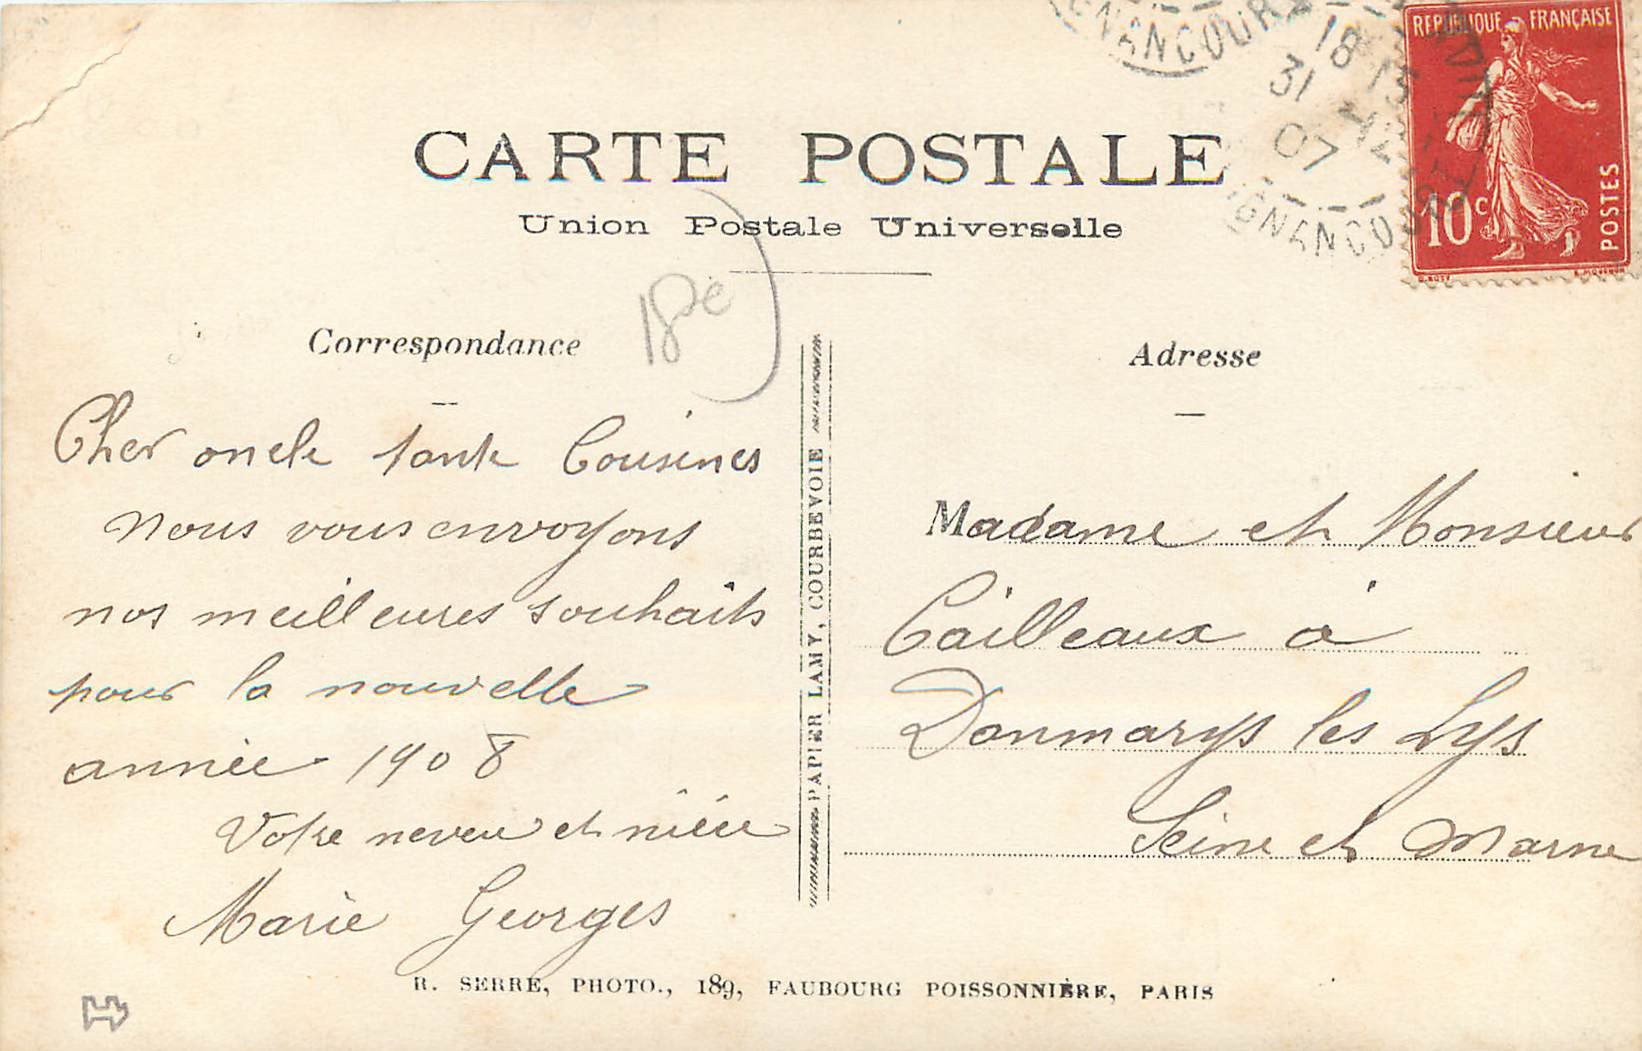 RÉPUBLIQUE FRANÇAISE
10c
POSTES
18 15
31 12
07
CARTE POSTALE
Union Postale Universelle
18e
Correspondance
Cher oncle tante Cousines
Nous vous envoyons
nos meilleures souhaits
pour la nouvelle
année 1908
Votre neveu et nièce
Marie Georges
PAPIER LAMY, COURBEVOIE
Adresse
Madame et Monsieur
Cailleaux à
Donmarys les Lys
Seine et Marne
R. SERRE, PHOTO., 189, FAUBOURG POISSONNIÈRE, PARIS